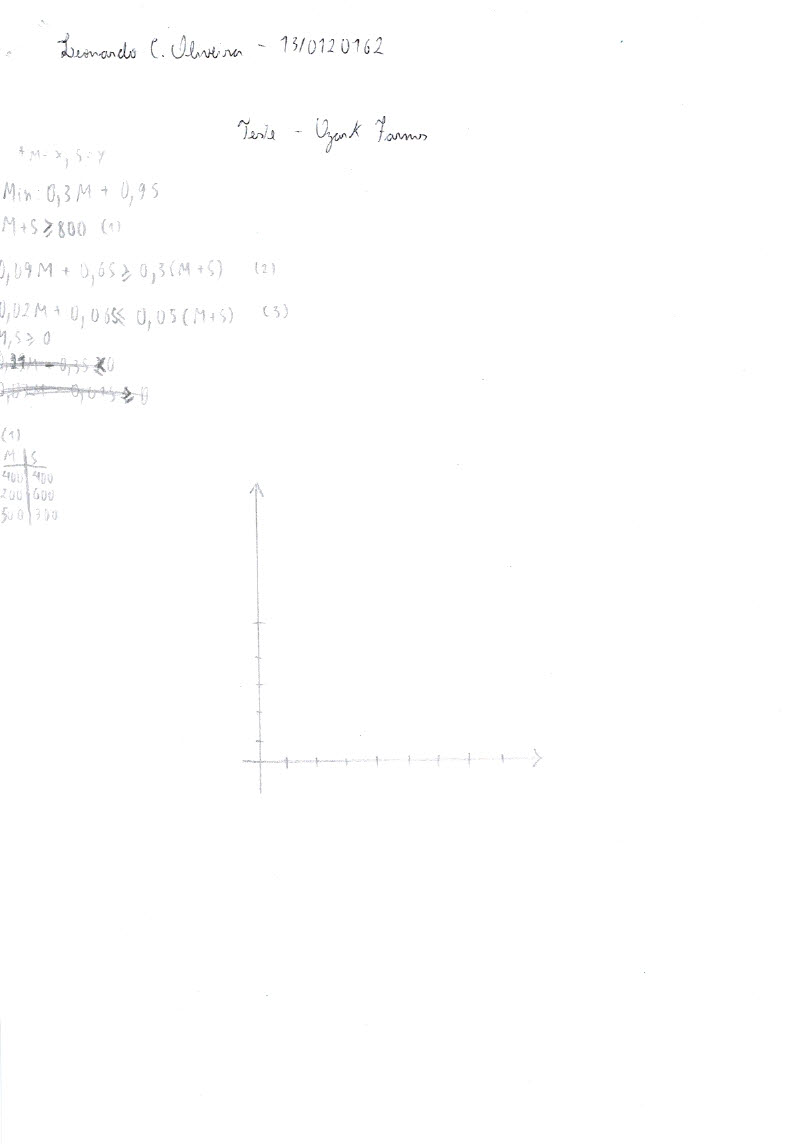 Leonardo C. Oliveira - 13/0120162
Teste - Ozark Farms
* M = x, S = y
Min: 0,3M + 0,9S
M+S ≥ 800 (1)
0,09M + 0,6S ≥ 0,3(M+S) (2)
0,02M + 0,06S ≤ 0,05(M+S) (3)
M,S ≥ 0
(1)
M | S
400 | 400
200 | 600
500 | 300